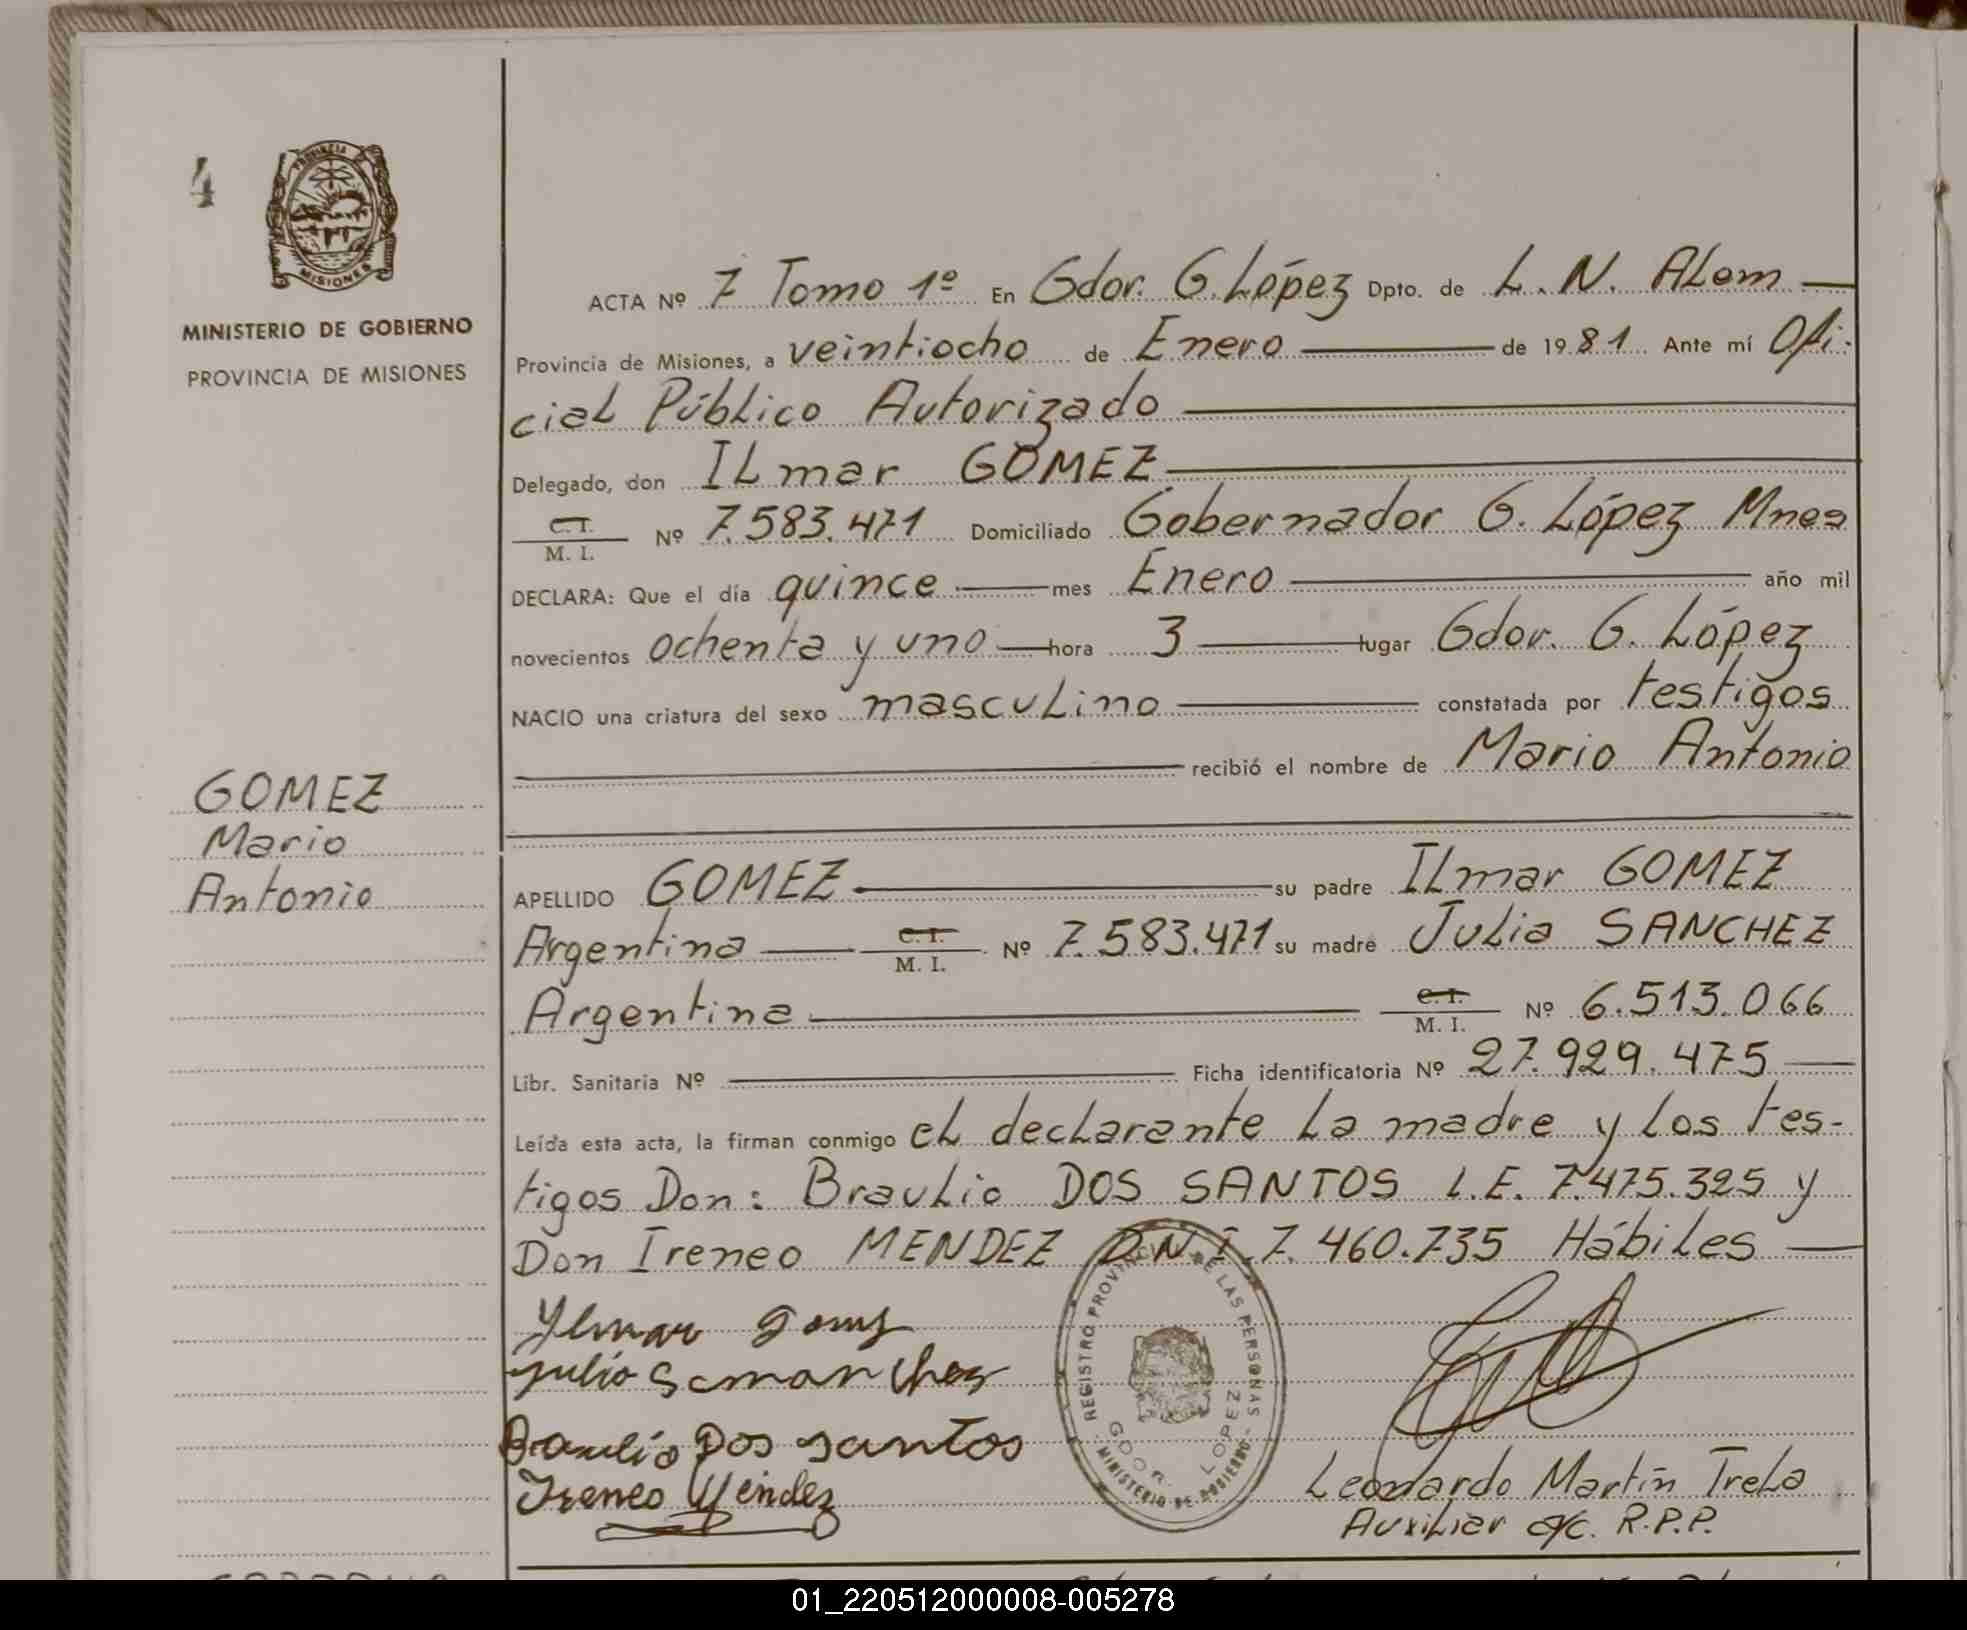 4
PROVINCIA
MISIONES
MINISTERIO DE GOBIERNO
PROVINCIA DE MISIONES
ACTA Nº 7 Tomo 1º En Gdor. G. López Dpto. de L. N. ALem
Provincia de Misiones, a veintiocho de Enero de 1981 Ante mí Ofi-
cial Público Autorizado
Delegado, don ILmar GOMEZ
C. I.
M. I. Nº 7.583.471 Domiciliado Gobernador G. López Mnes
DECLARA: Que el día quince mes Enero año mil
novecientos ochenta y uno hora 3 lugar Gdor. G. López
NACIO una criatura del sexo masculino constatada por testigos
recibió el nombre de Mario Antonio
GOMEZ
Mario
Antonio
APELLIDO GOMEZ su padre ILmar GOMEZ
Argentina C. I. M. I. Nº 7.583.471 su madre Julia SANCHEZ
Argentina C. I. M. I. Nº 6.513.066
Libr. Sanitaria Nº Ficha identificatoria Nº 27.929.475
Leída esta acta, la firman conmigo el declarante La madre y Los tes-
tigos Don: Braulio DOS SANTOS L.E. 7.475.325 y
Don Ireneo MENDEZ D.N.I. 7.460.735 Hábiles
Ylmar
Braulio Dos santos
Ireneo Méndez
REGISTRO PROVINCIAL DE LAS PERSONAS
GDOR. LOPEZ
MINISTERIO DE GOBIERNO
Leonardo Martín Trela
Auxiliar a/c. R.P.P.
01_220512000008-005278